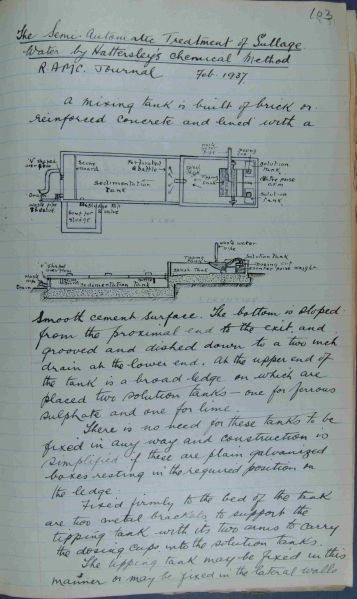 103
The Semi-Automatic Treatment of Sullage
Water by Hattersley's Chemical Method
R.A.M.C. Journal Feb. 1937
A mixing tank is built of brick or
reinforced concrete and lined with a
waste water pipe
Scum board
Perforated baffle
Sedimentation Tank
Solution Tank
Solution Tank
Drain
waste water pipe
Solution Tank
Tipping Tank
Dosing cup
counter poise weight
Drain
Sedimentation Tank
smooth cement surface. The bottom is sloped
from the proximal end to the exit, and
grooved and dished down to a two inch
drain at the lower end. At the upper end of
the tank is a broad ledge on which are
placed two solution tanks – one for ferrous
sulphate and one for lime.
There is no need for these tanks to be
fixed in any way and construction is
simplified if these are plain galvanized
boxes resting in the required position on
the ledge.
Fixed firmly to the bed of the tank
are two metal brackets to support the
tipping tank with its two arms to carry
the dosing cups into the solution tanks.
The tipping tank may be fixed in this
manner or may be fixed in the lateral walls